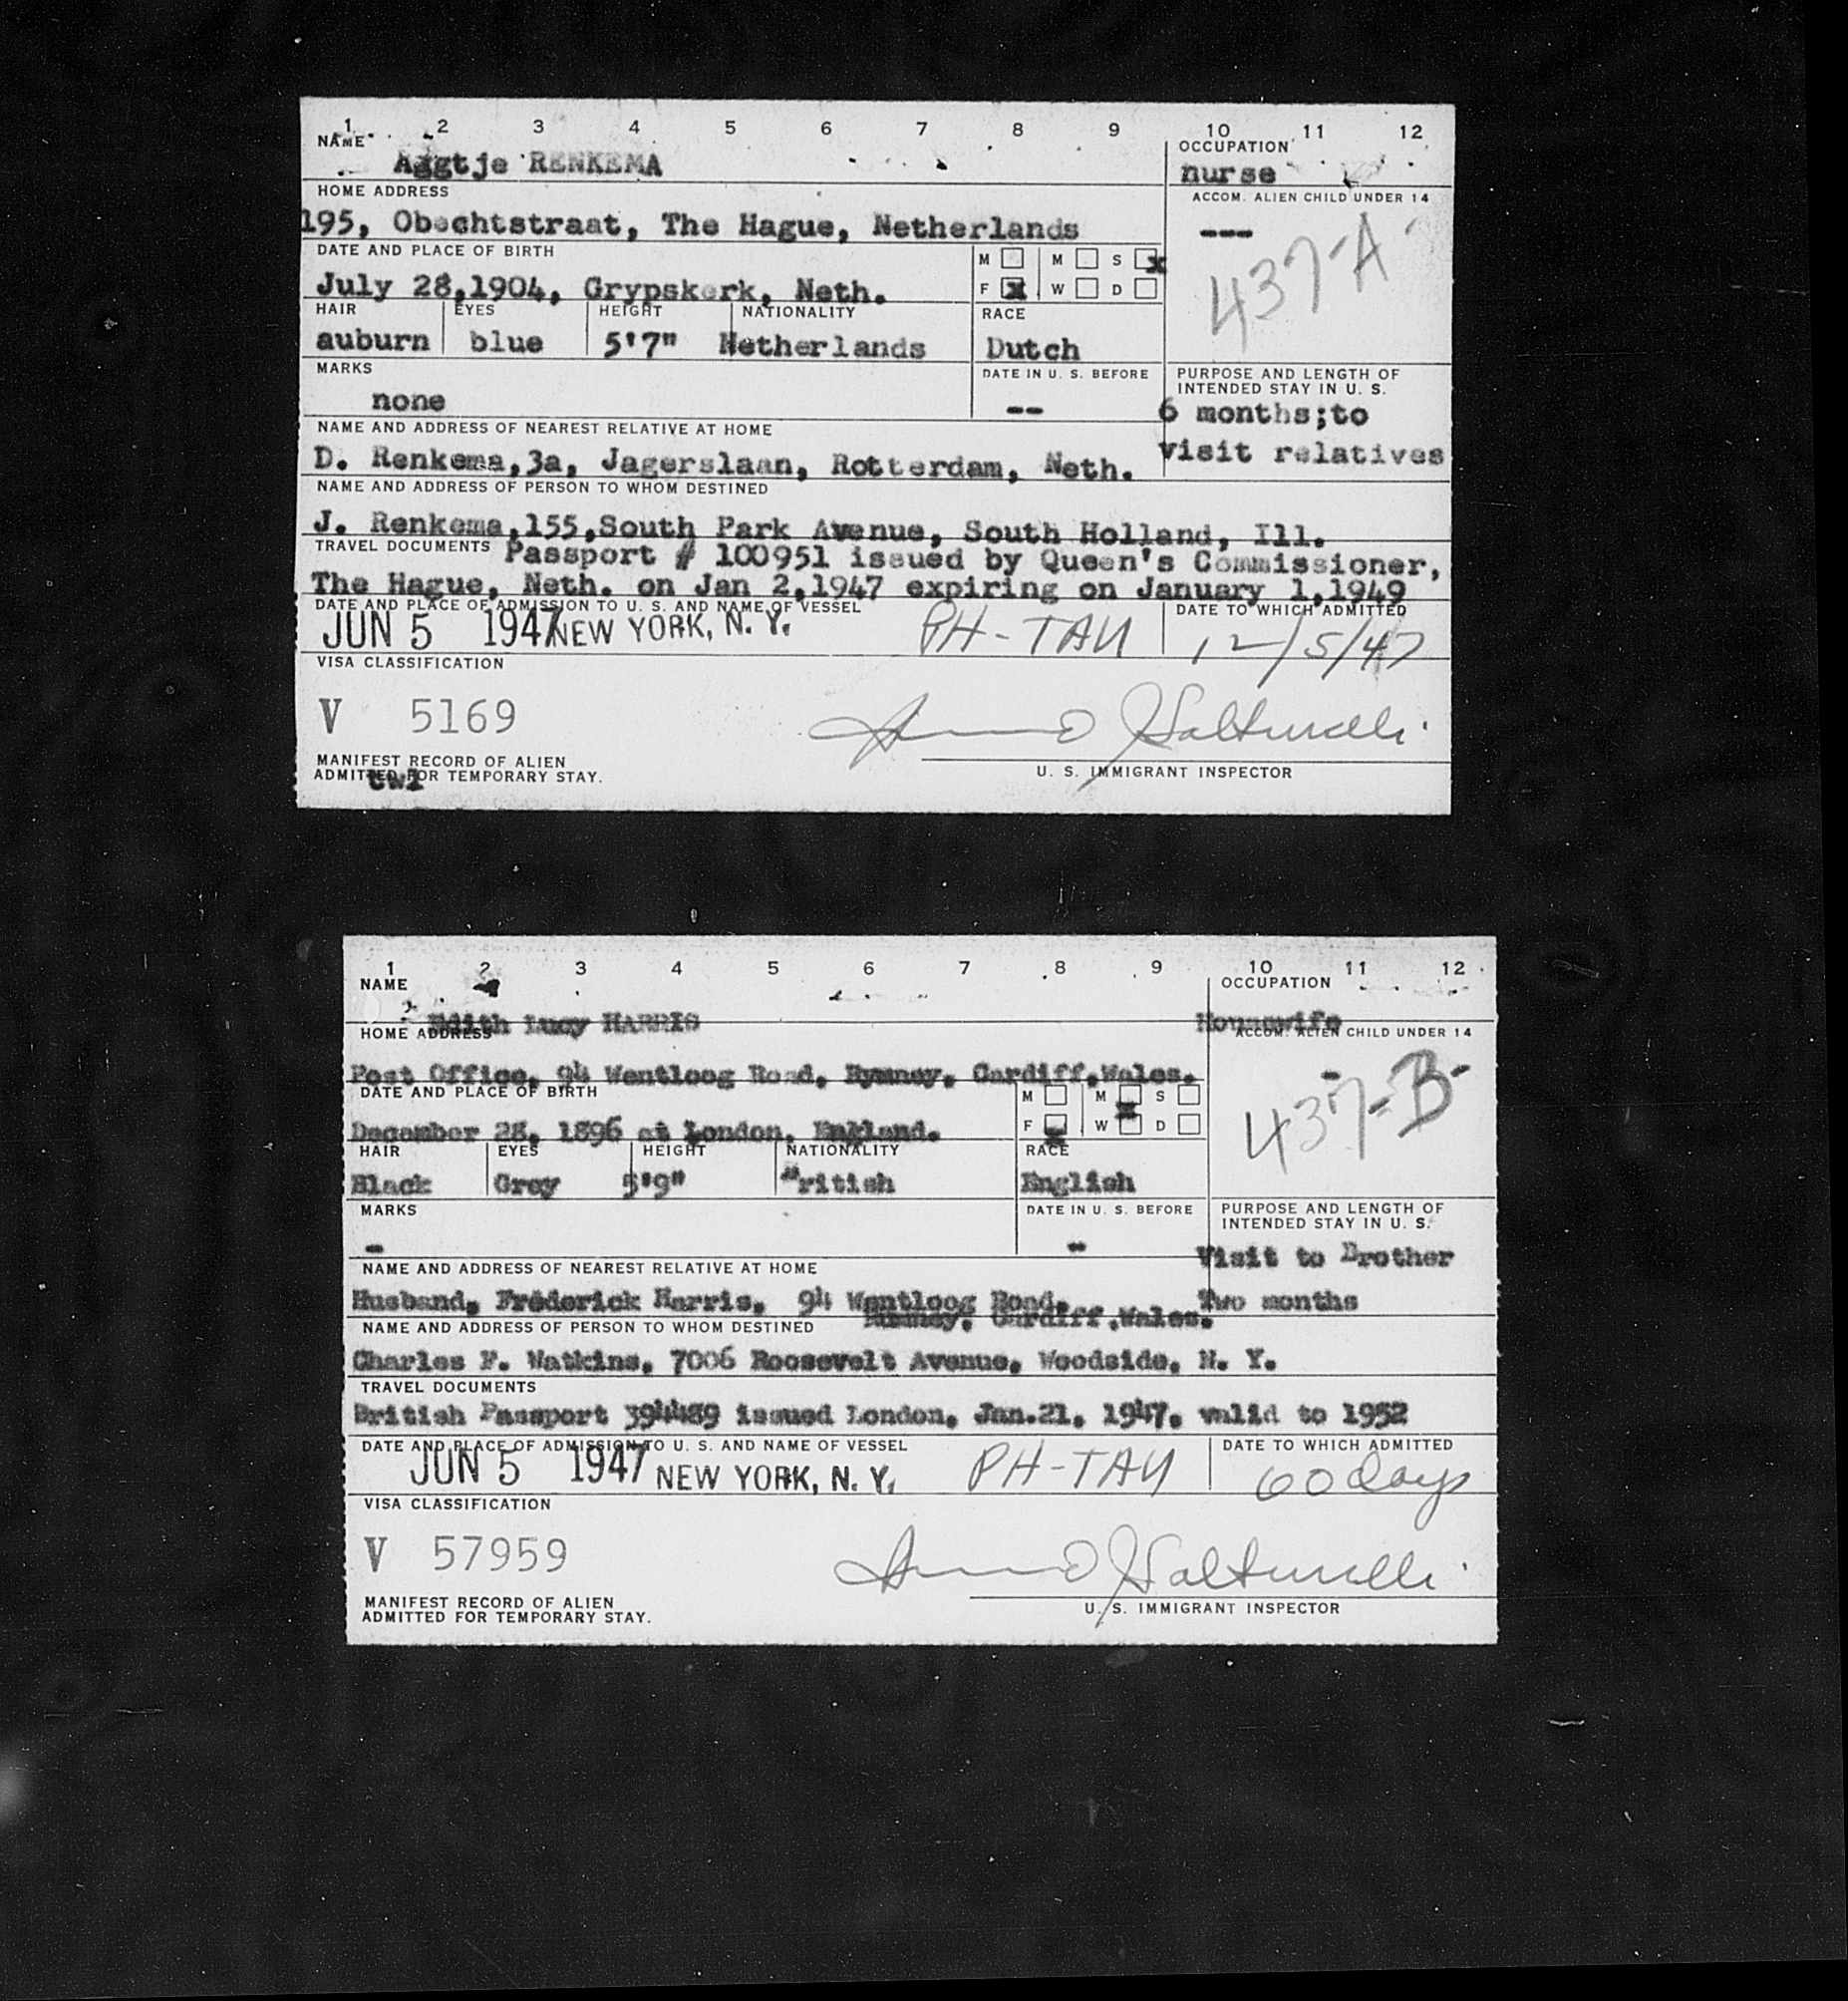 1 2 3 4 5 6 7 8 9 10 11 12
NAME OCCUPATION
Aggtje RENKEMA nurse
HOME ADDRESS ACCOM. ALIEN CHILD UNDER 14
195, Obechtstraat, The Hague, Netherlands ---
437-A
DATE AND PLACE OF BIRTH M M S x
July 28,1904, Grypskerk, Neth. F x W D
HAIR EYES HEIGHT NATIONALITY RACE
auburn blue 5'7" Netherlands Dutch
MARKS DATE IN U. S. BEFORE PURPOSE AND LENGTH OF
INTENDED STAY IN U. S.
none -- 6 months;to
NAME AND ADDRESS OF NEAREST RELATIVE AT HOME
D. Renkema,3a, Jagerslaan, Rotterdam, Neth. visit relatives
NAME AND ADDRESS OF PERSON TO WHOM DESTINED
J. Renkema,155,South Park Avenue, South Holland, Ill.
TRAVEL DOCUMENTS Passport # 100951 issued by Queen's Commissioner,
The Hague, Neth. on Jan 2,1947 expiring on January 1,1949
DATE AND PLACE OF ADMISSION TO U. S. AND NAME OF VESSEL DATE TO WHICH ADMITTED
JUN 5 1947 NEW YORK, N. Y. PH-TAU 12/5/47
VISA CLASSIFICATION
V 5169
MANIFEST RECORD OF ALIEN
ADMITTED FOR TEMPORARY STAY. U. S. IMMIGRANT INSPECTOR
1 2 3 4 5 6 7 8 9 10 11 12
NAME OCCUPATION
Edith Lucy HARRIS Housewife
HOME ADDRESS ACCOM. ALIEN CHILD UNDER 14
Post Office, 94 Wentloog Road, Rymney, Cardiff,Wales. -
437-B
DATE AND PLACE OF BIRTH M M x S
December 28, 1896 at London, England. F x W D
HAIR EYES HEIGHT NATIONALITY RACE
Black Grey 5'9" British English
MARKS DATE IN U. S. BEFORE PURPOSE AND LENGTH OF
INTENDED STAY IN U. S.
- - Visit to Brother
NAME AND ADDRESS OF NEAREST RELATIVE AT HOME
Husband, Frederick Harris, 94 Wentloog Road, Two months
Rumney, Cardiff,Wales.
NAME AND ADDRESS OF PERSON TO WHOM DESTINED
Charles F. Watkins, 7006 Roosevelt Avenue, Woodside, N. Y.
TRAVEL DOCUMENTS
British Passport 394489 issued London, Jan.21, 1947, valid to 1952
DATE AND PLACE OF ADMISSION TO U. S. AND NAME OF VESSEL DATE TO WHICH ADMITTED
JUN 5 1947 NEW YORK, N. Y. PH-TAU 60 days
VISA CLASSIFICATION
V 57959
MANIFEST RECORD OF ALIEN
ADMITTED FOR TEMPORARY STAY. U. S. IMMIGRANT INSPECTOR